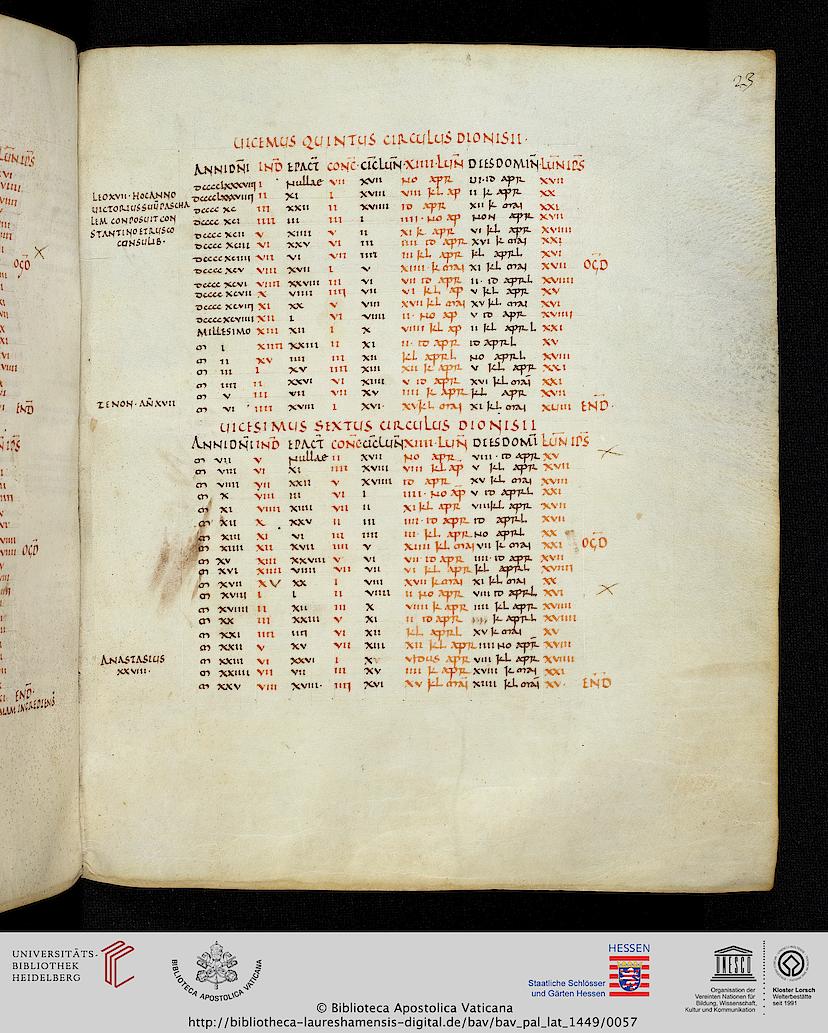 23
UICEMUS QUINTUS CIRCULUS DIONISII·
ANNIDNI IND EPACT CONC· CICLUN· XIIII·LUN DIESDOMIN LUNIPS
dcccclxxxviiii I Nullae VII XVII NO APR UI·ID APR XVII
XI I XVIII VIII KL AP II K APR XX
dcccc XC III XXII II XVIIII ID APR XII K MAI XXI
dcccc XCI IIII III III I IIII·NO AP NON APR XVII
dcccc XCII V XIIII V II XI K APR VI KL APR XVIIII
dcccc XCIII VI XXV VI III IIII ID APR XVI K MAI XXI
dcccc XCIIII VII VI VII IIII III KL APR KL APRL XVI
dcccc XCV VIII XVII I V XIIII K MAI XI KL MAI XVII OGD
dcccc XCVI VIIII XXVIII III VI VII ID APR II·ID APRL XVIIII
dcccc XCVII X VIIII IIII VII VI KL AP V KL APR XV
dcccc XCVIII XI XX V VIII XVII KL MAI XV KL MAI XVI
dcccc XCVIIII XII I VI VIIII II·NO AP V ID APR XVIIII
MILLESIMO XIII XII I X VIIII KL AP II KL APRL XXI
M I XIIII XXIII II XI II·ID APR ID APRL XV
M II XV IIII III XII KL APRL NO APRL XVIII
M III I XV IIII XIII XII K APR V KL APR XXI
M IIII II XXVI VI XIIII V ID APR XVI KL MAI XXI
M V III VII VII XV IIII K APR KL APR XVII
M VI IIII XVIII I XVI· XVKL MAI XI KL MAI XVIII END·
LEOXVII·HOCANNO
UICTORIUSSUUPASCHA
LEM CONPOSUIT CON
STANTINOETRUSCO
CONSULIB·
ZENON·AÑXVII
UICESIMUS SEXTUS CIRCULUS DIONISII
ANNIDNI IND EPACT CONC CICLUN XIIII·LUN DIESDOMI LUNIPS
M VII V Nullae II XVII NO APR VIII·ID APR XV
M VIII VI XI III XVIII VIII KLAP V KL APR XVII
M VIIII VII XXII V XVIIII ID APR XV KL MAI XVIII
M X VIII III VI I IIII·NO AP V ID APRL XXI
M XI VIIII XIIII VII II XI KL APR VIIIKL APR XVII
M XII X XXV II III IIII·ID APR ID APRL XVII
M XIII XI VI III IIII III·KL APR NO APRL XX
M XIIII XII XVII IIII V XIIII KL MAI VII K MAI XXI OGD
M XV XIII XXVIII V VI VII ID APR IIII·ID APR XVII
M XVI XIIII VIIII VII VII VI KL APR KL APRL XVIIII
M XVII XV XX I VIII XVII K MAI XI KL MAI XX
M XVIII I I II VIIII II NO APR VIII ID APRL XVI
M XVIIII II XII III X VIIII K APR IIII KL APR XVIII
M XX III XXIII V XI II ID APR K APRL XVIII
M XXI IIII IIII VI XII KL APRL XV K MAI XV
M XXII V XV VII XIII XII KL APR IIII NO APR XVIII
M XXIII VI XXVI I VIDUS APR VIII KL APR XVIIII
M XXIIII VII VII III XV IIII K APR XVIII K MAI XXI
M XXV VIII XVIII· IIII XVI XV KL MAI XIIII KL MAI XV· END
ANASTASIUS
XXVIII·
OGD
END
OGD
END·
UNIVERSITÄTS-
BIBLIOTHEK
HEIDELBERG
BIBLIOTECA APOSTOLICA VATICANA
HESSEN
Staatliche Schlösser
und Gärten Hessen
UNESCO
Organisation der
Vereinten Nationen für
Bildung, Wissenschaft,
Kultur und Kommunikation
Kloster Lorsch
Welterbestätte
seit 1991
© Biblioteca Apostolica Vaticana
http://bibliotheca-laureshamensis-digital.de/bav/bav_pal_lat_1449/0057